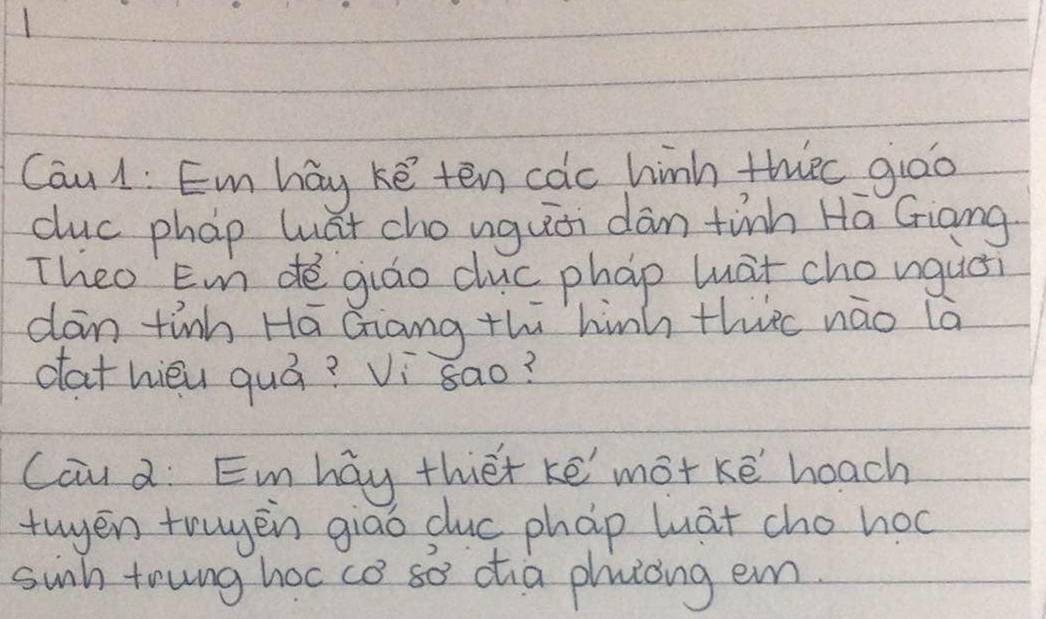 Câu 1: Em hãy kể tên các hình thức giáo
dục pháp luật cho người dân tỉnh Hà Giang.
Theo Em để giáo dục pháp luật cho người
dân tỉnh Hà Giang thì hình thức nào là
đạt hiệu quả? Vì sao?
Câu 2: Em hãy thiết kế một kế hoạch
tuyên truyền giáo dục pháp luật cho học
sinh trung học cơ sở địa phương em.